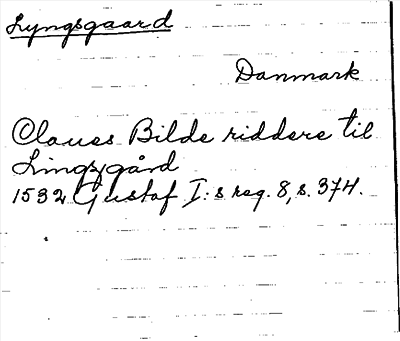 Lyngsgaard
Danmark
Claues Bilde riddere til
Lingzgård
1532 Gustaf I:s reg. 8, s. 374.